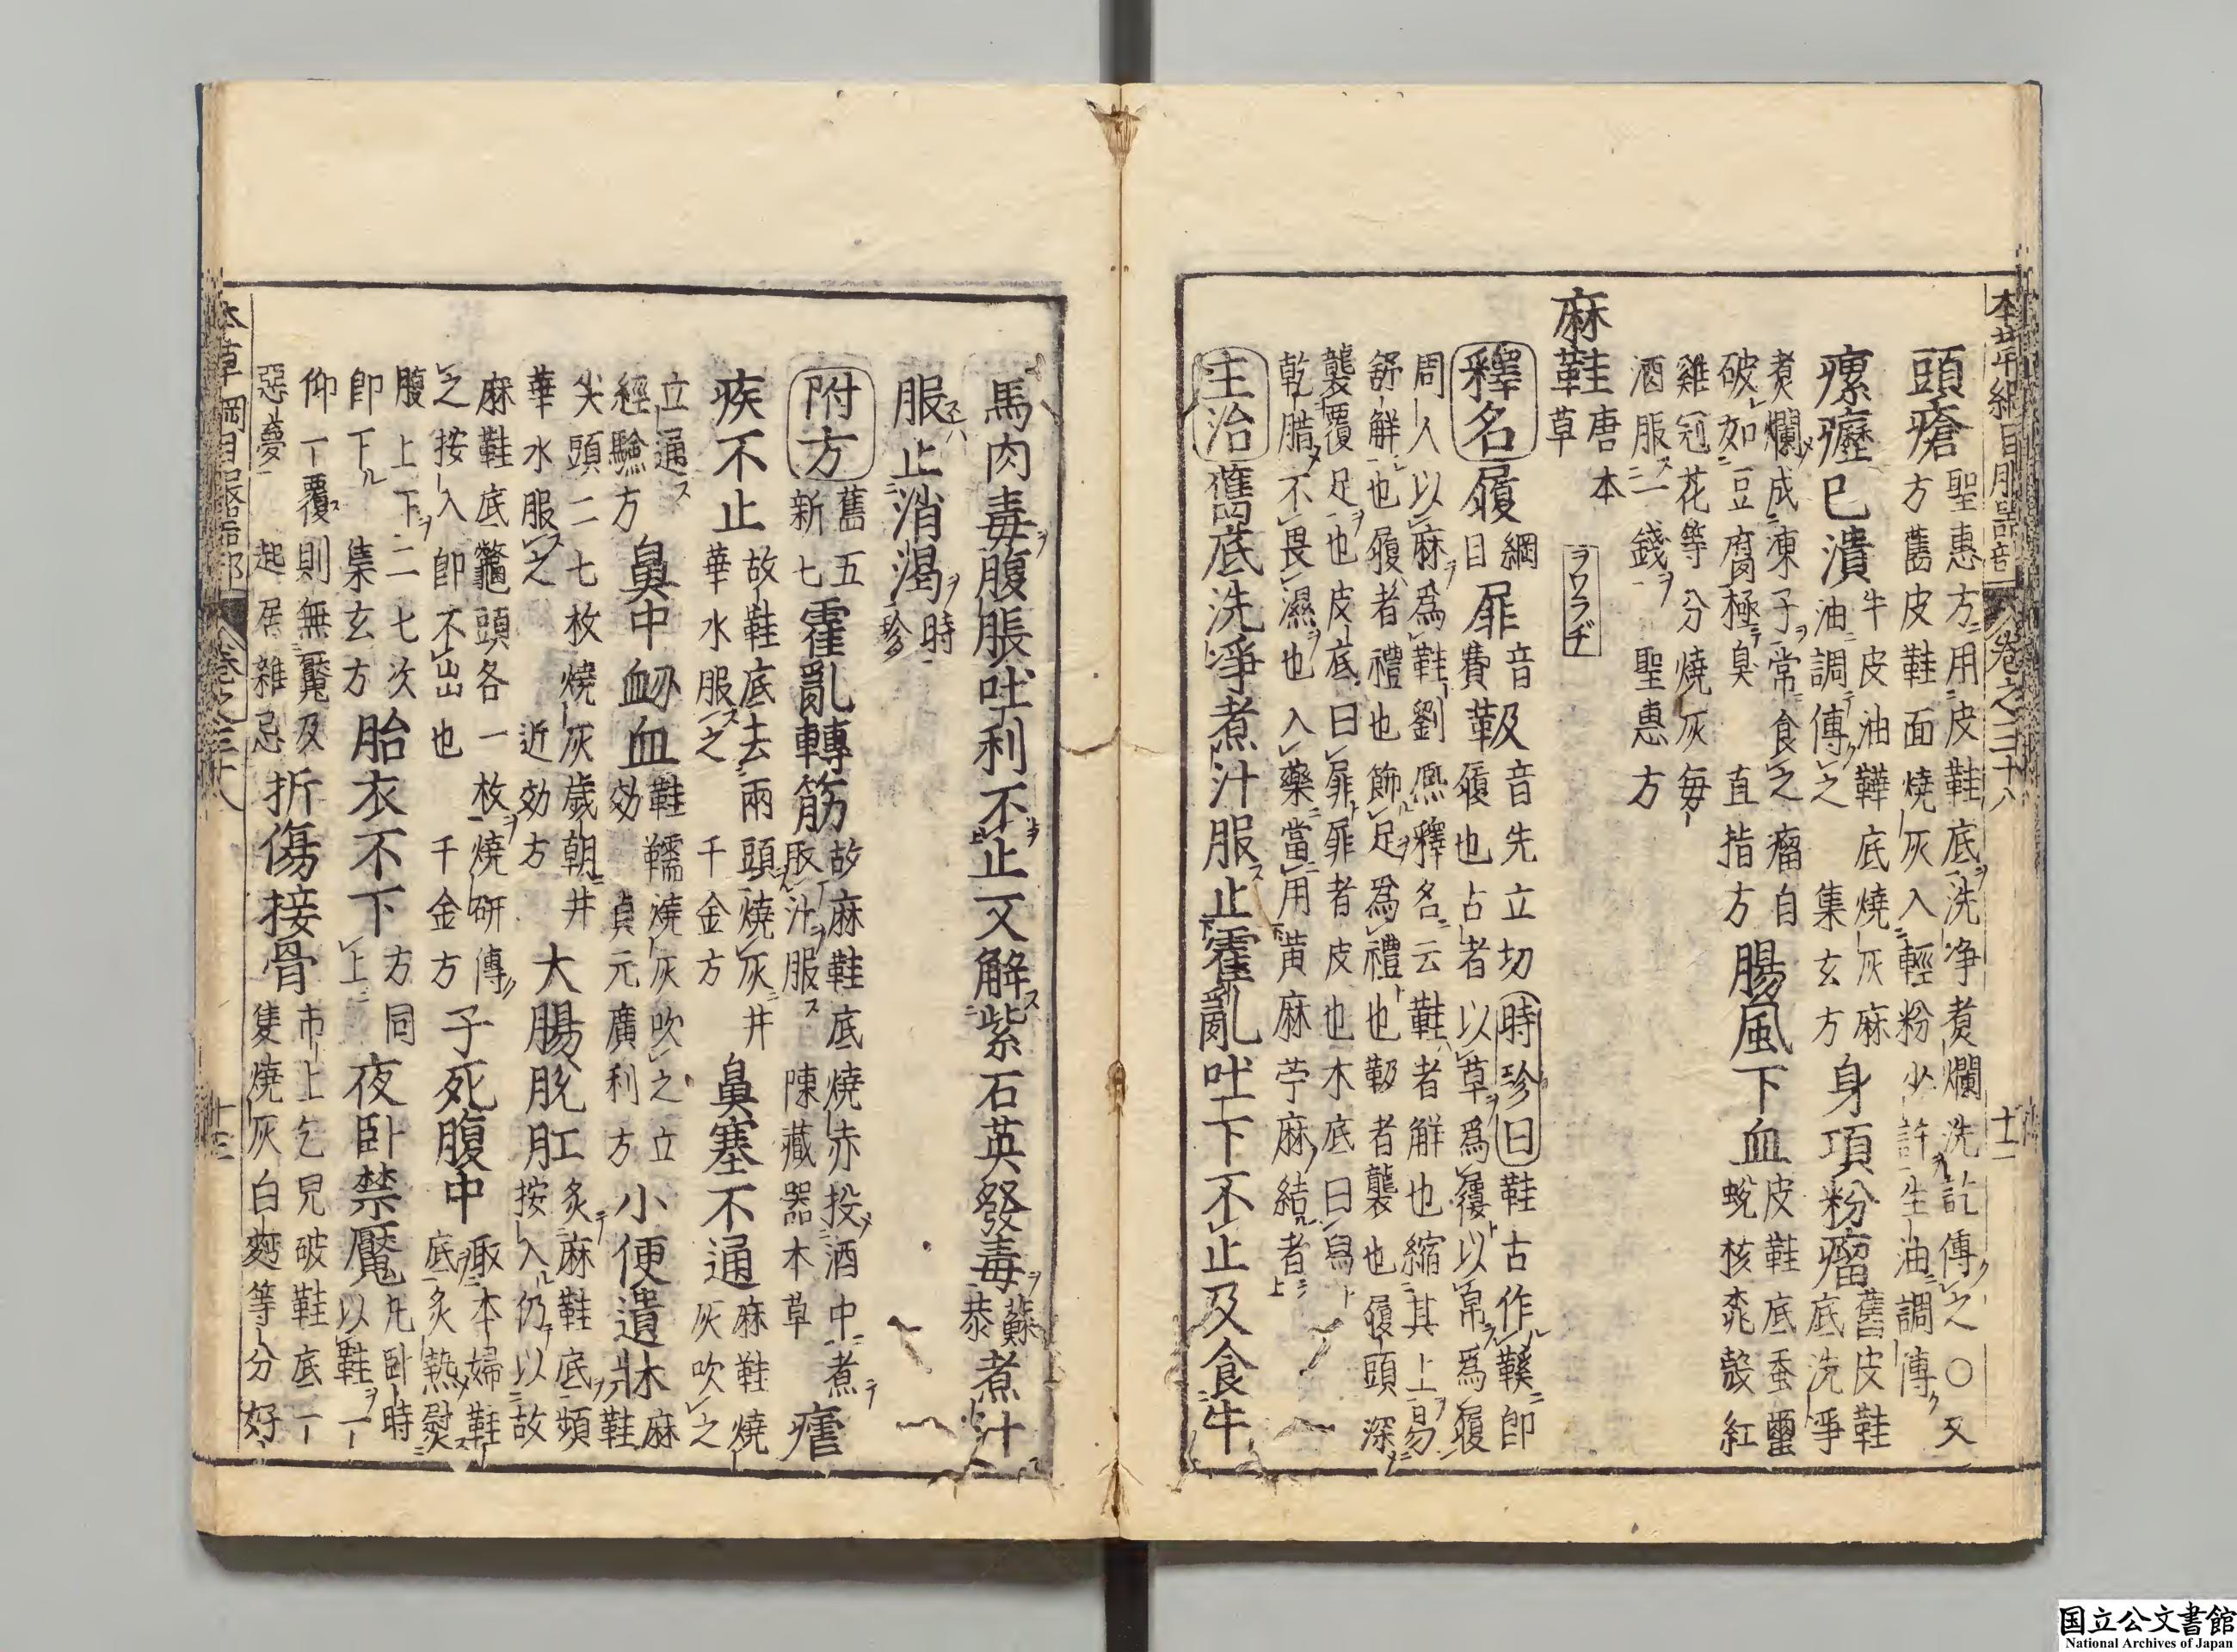 頭瘡 聖惠方用皮鞋底洗淨煑爛洗訖傅之○又
方舊皮鞋面燒灰入輕粉少許生油調傅
瘰癧已潰 牛皮油鞾底燒灰麻
油調傅之 集玄方 身項粉瘤 舊皮鞋
底洗爭
煑爛成凍子常食之瘤自
破如豆腐極臭 直指方 腸風下血 皮鞋底蚕䖝
蛻核桃殼紅
雞冠花等分燒灰每
酒服一錢 聖惠方
麻鞋 唐本
草 ヲワラヂ
釋名 履 綱
目 屝 音
費 靸 音先立切 時珍曰 鞋古作鞵即
履也占者以草爲屨以帛爲履
周人以麻爲鞋劉熙釋名云鞋者解也縮其上易
舒解也履者禮也飾足爲禮也靸者襲也履頭深
襲覆足也皮底曰屝屝者皮也木底曰舄
乾腊不畏濕也入藥當用黄麻苧麻結者
主治 舊底洗淨煮汁服止霍亂吐下不止及食牛
馬肉毒腹脹吐利不止又解紫石英發毒 蘇
恭 煮汁
服止消渴 時
珍
附方 舊五
新七 霍亂轉筋 故麻鞋底燒赤投酒中煮
取汁服 陳藏器本草 瘧
疾不止 故鞋底去兩頭燒灰井
華水服之 千金方 鼻塞不通 麻鞋燒
灰吹之
立通
經驗方 鼻中衂血 鞋䩞燒灰吹之立
効 貞元廣利方 小便遺牀 麻
鞋
尖頭二七枚燒灰歲朝井
華水服之 近効方 大腸脫肛 炙麻鞋底頻
按入仍以故
麻鞋底鼈頭各一枚燒研傅
之按入卽不出也 千金方 子死腹中 取本婦鞋
底炙熱熨
腹上下二七次
卽下 集玄方 胎衣不下 方同
上 夜卧禁魘 凢卧時
以鞋一
仰一覆則無魘及
惡夢 起居雜忌 折傷接骨 市上乞兒破鞋底一
隻燒灰白麪等分好
本草綱目服器部 卷之三十八 十二
本草綱目服器部 卷之三十八 十三
国立公文書館
National Archives of Japan